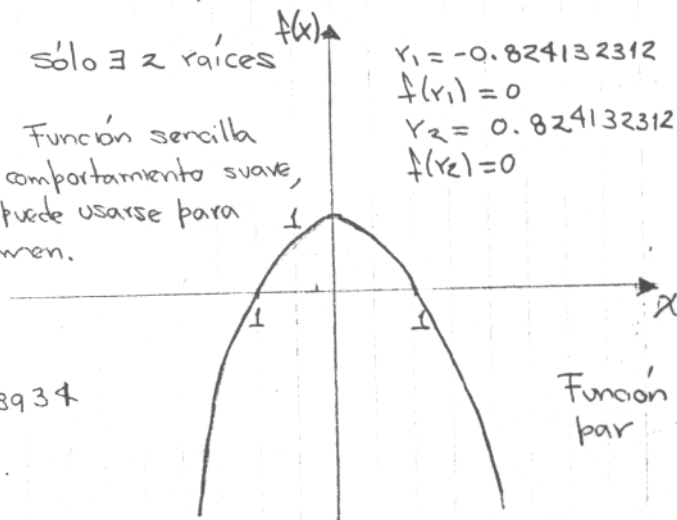 sólo ∃ 2 raíces
f(x)
r₁ = -0.824132312
f(r₁) = 0
r₂ = 0.824132312
f(r₂) = 0
Función sencilla
comportamiento suave,
puede usarse para
men.
1
1
1
x
3934
Función
par